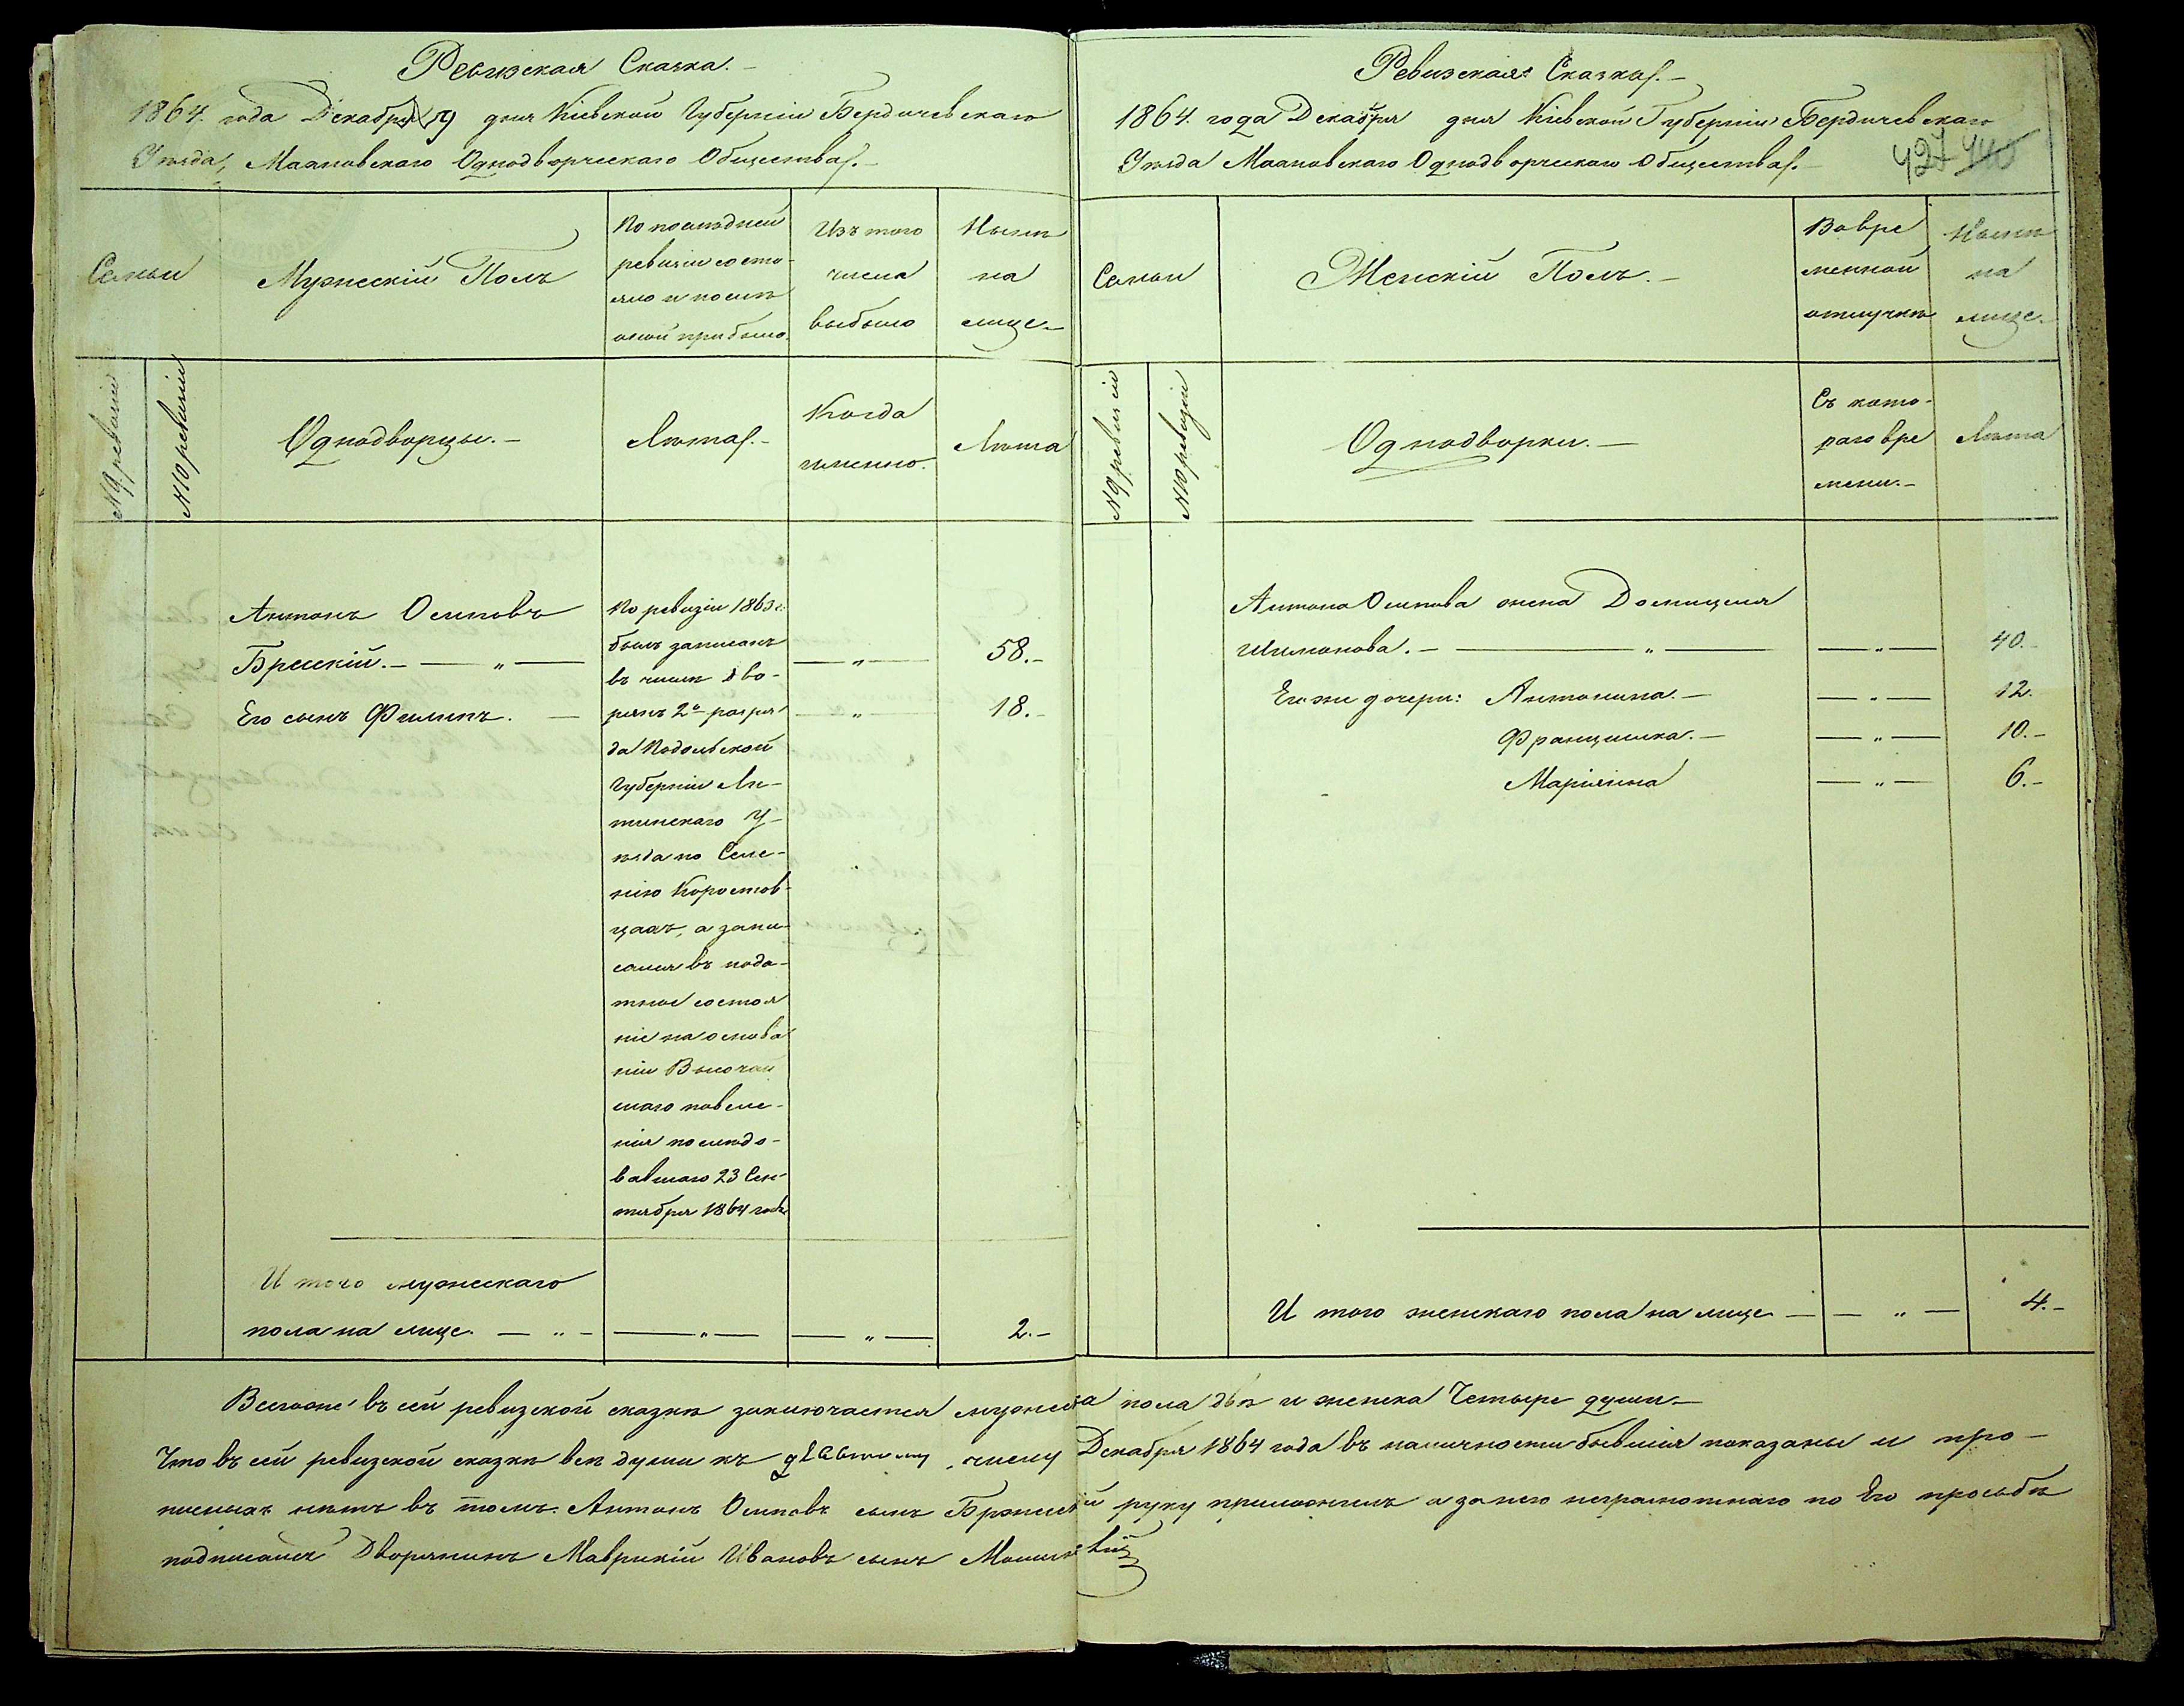 Ревизская Сказка.
1864. года Декабря 19 дня Кіевской Губерніи Бердичевскаго
Уѣзда, Махновскаго Однодворческаго Общества.
Семьи
Мужескій Полъ
По послѣдней
ревизіи состо-
яло и послѣ
оной прибыло.
Изъ того
числа
выбыло
Нынѣ
на
лице
№ 9 ревизіи
№ 10 ревизіи
Однодворцы.
Лѣта.
Когда
именно.
Лѣта
Антонъ Осиповъ
Бржескій. — " — — " — 58.
Его сынъ Филипъ. — — " — 18.
По ревизіи 1863 г.
былъ записанъ
въ числѣ дво-
рянъ 2го разря
да Подольской
Губерніи Ли-
тинскаго У-
ѣзда по Селе-
нію Коростов-
цахъ, а запи-
сался въ пода-
тное состоя
ніе на основа
ніи Высочай
шаго повеле-
нія послѣдо-
вавшаго 23 Сен-
тября 1864 года
И того мужескаго
пола на лице. — " — — " — — " — 2.
Ревизская Сказка.
1864. года Декабря дня Кіевской Губерніи Бердичевскаго
Уѣзда Махновскаго Однодворческаго Общества.
427 440
Семьи
Женскій Полъ.
Во вре
менной
отлучкѣ
Нынѣ
на
лице.
№ 9 ревизіи
№ 10 ревизіи
Однодворки.
Съ кото-
раго вре
мени.
Лѣта
Антона Осипова жена Домицеля
Шимонова. — " — — " — 40.
Его же дочери: Антонина. — — " — 12.
Францишка. — — " — 10.
Маріянна — " — 6.
И того женскаго пола на лице — — " — 4.
Всего же въ сей ревизской сказкѣ заключается мужеска пола двѣ и женска Четыре души.
Что въ сей ревизской сказкѣ всѣ души къ числу Декабря 1864 года въ наличности бывшія показаны и про-
писныхъ нѣтъ въ томъ. Антонъ Осиповъ сынъ Бржескій руку приложилъ а за него неграмотнаго по Его просьбѣ
подписался Дворянинъ Маврикій Ивановъ сынъ